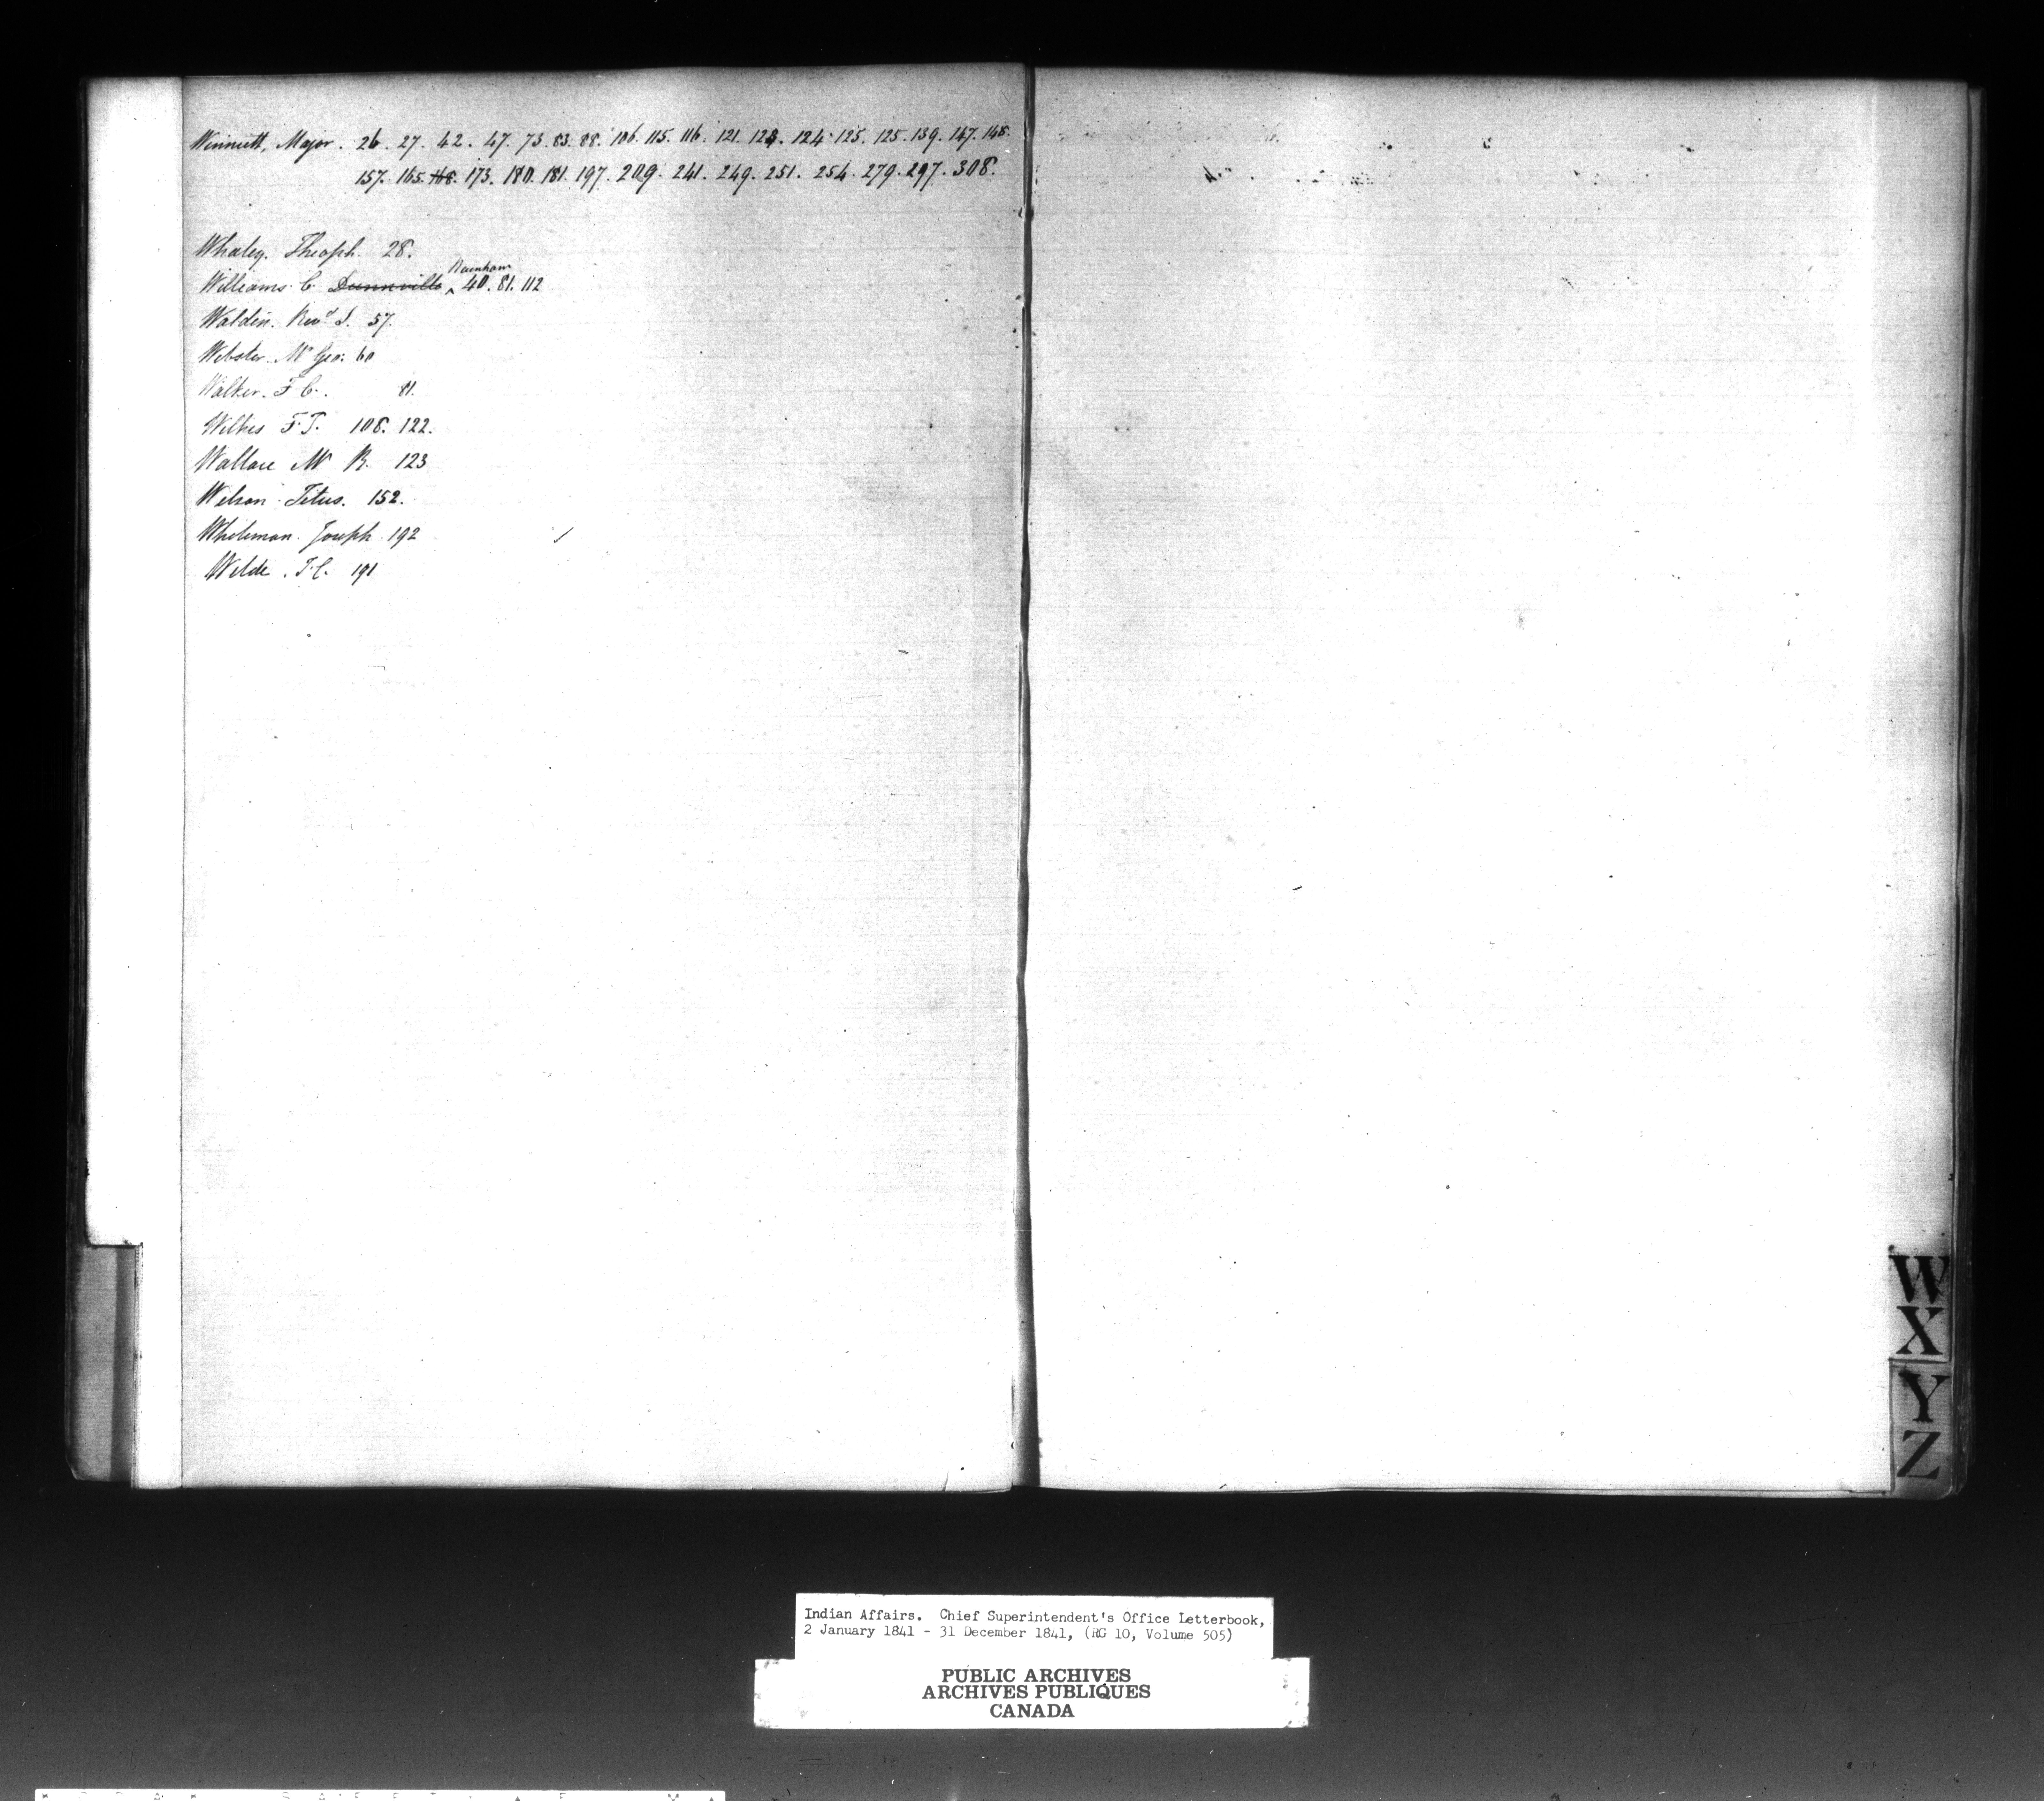 Winniett, Major. 26. 27. 42. 47. 73. 83. 88. 106. 115. 116. 121. 123. 124. 125. 125. 139. 147. 148.
157. 165. 168. 173. 180. 181. 197. 209. 241. 249. 251. 254. 279. 297. 308.
Whaley. Theoph. 28.
Rainham
Williams. C. Dunnville ^ 40. 81. 112
Walden. Revd S. 57.
Webster. Mr Geo: 60
Walker. F C. 81.
Wilkes F. T. 108. 122.
Wallace Mr R. 123
Wilson Titus. 152.
Whiteman. Joseph. 192
Wilde. T. C. 191
W
X
Y
Z
Indian Affairs. Chief Superintendent's Office Letterbook,
2 January 1841 - 31 December 1841, (RG 10, Volume 505)
PUBLIC ARCHIVES
ARCHIVES PUBLIQUES
CANADA